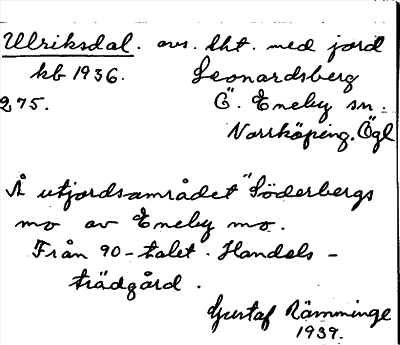 Ulriksdal. avs. lht. med jord
hb 1936. Leonardsberg
275. Ö. Eneby sn.
Norrköping. Ögl
Å utjordsområdet "Söderbergs
mo av Eneby mo.
Från 90-talet. Handels-
trädgård.
Gustaf Rämminge
1939.